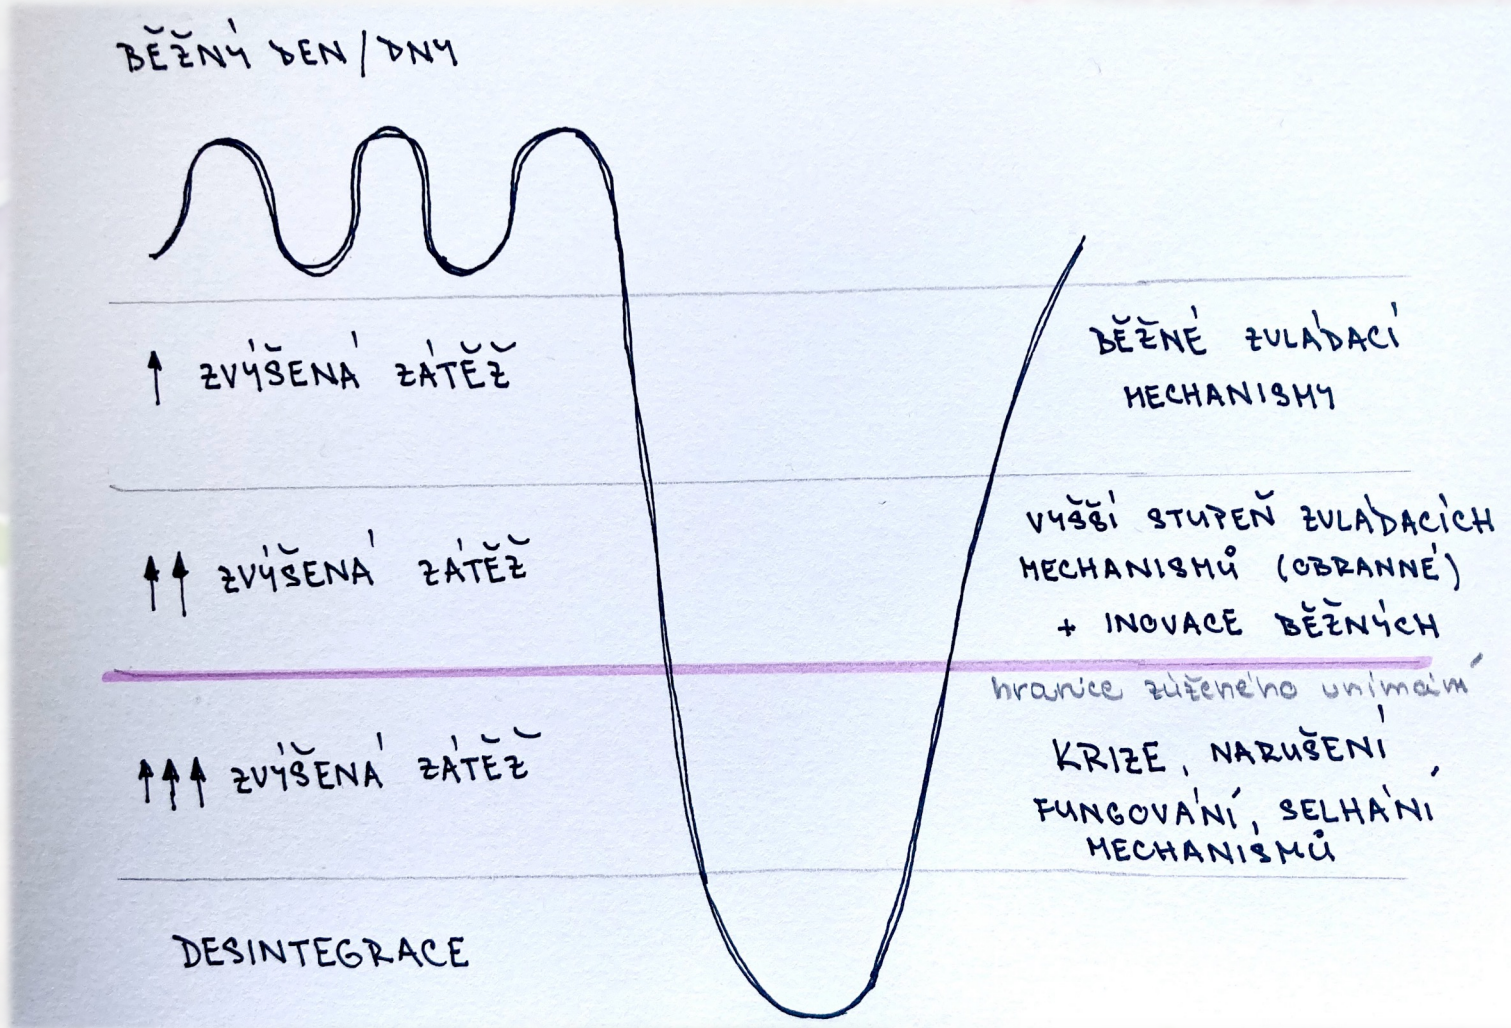 BĚŽNÝ DEN / DNY
↑ ZVÝŠENÁ ZÁTĚŽ
BĚŽNÉ ZVLÁDACÍ
MECHANISMY
↑↑ ZVÝŠENÁ ZÁTĚŽ
VYŠŠÍ STUPEŇ ZVLÁDACÍCH
MECHANISMŮ (OBRANNÉ)
+ INOVACE BĚŽNÝCH
hranice zúženého vnímání
↑↑↑ ZVÝŠENÁ ZÁTĚŽ
KRIZE, NARUŠENÍ
FUNGOVÁNÍ, SELHÁNÍ
MECHANISMŮ
DESINTEGRACE